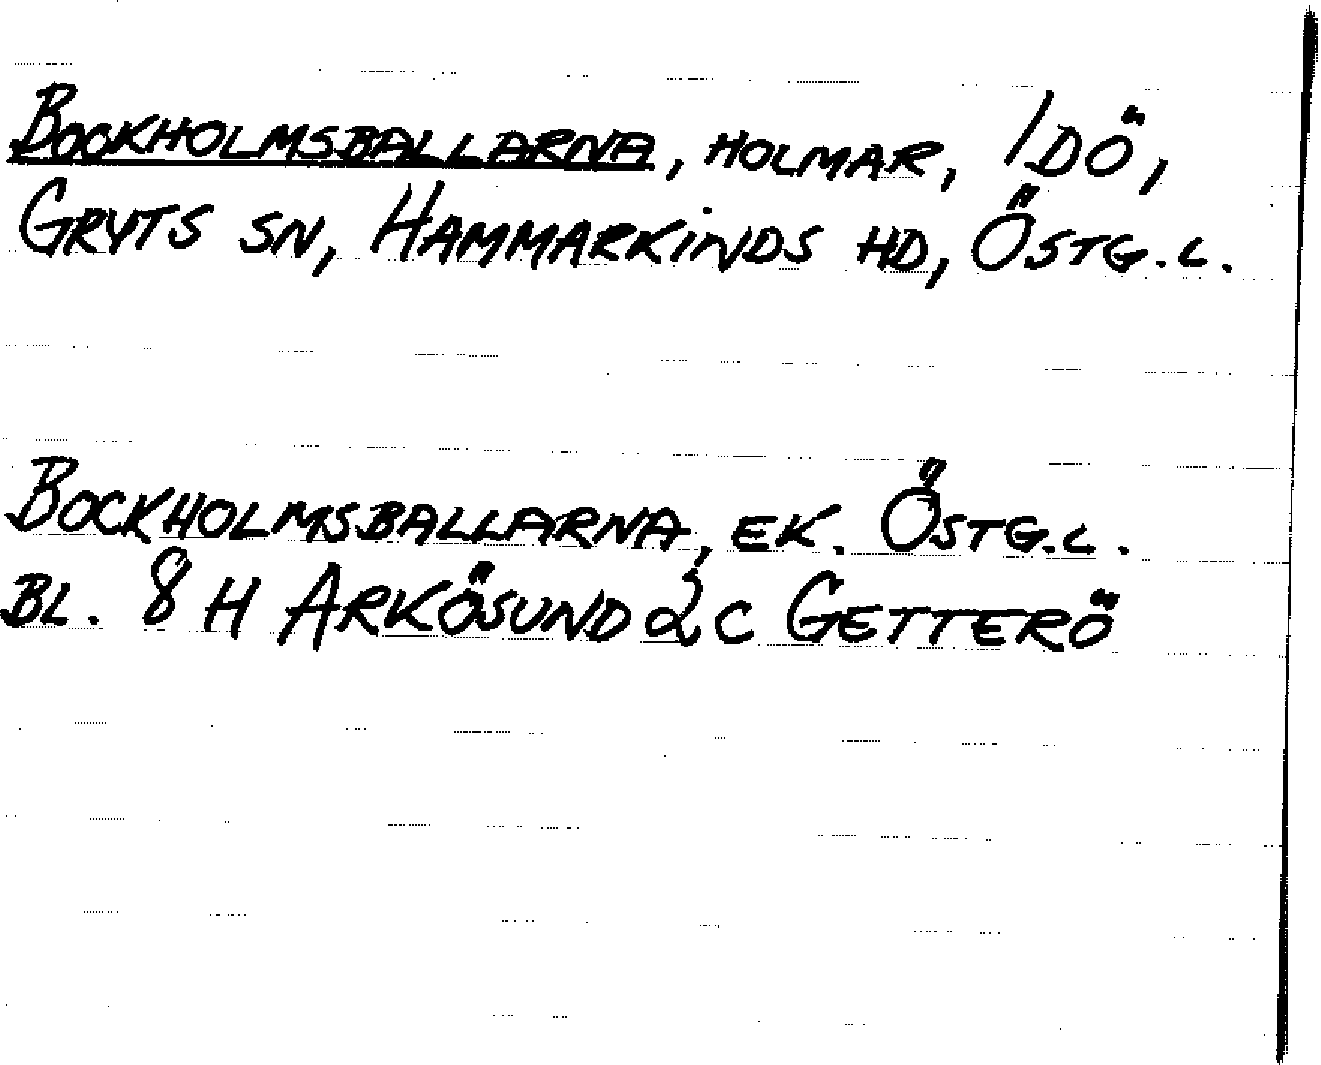 BOCKHOLMSBALLARNA, HOLMAR, IDÖ,
GRYTS SN, HAMMARKINDS HD, ÖSTG.L.
BOCKHOLMSBALLARNA, EK. ÖSTG.L.
BL. 8 H ARKÖSUND 2 C GETTERÖ